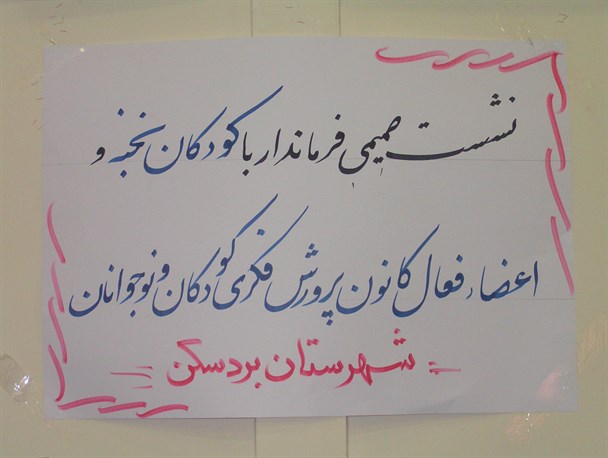 نشست صمیمی فرماندار با کودکان نخبه و
اعضاء فعال کانون پرورش فکری کودکان و نوجوانان
= شهرستان بردسکن =